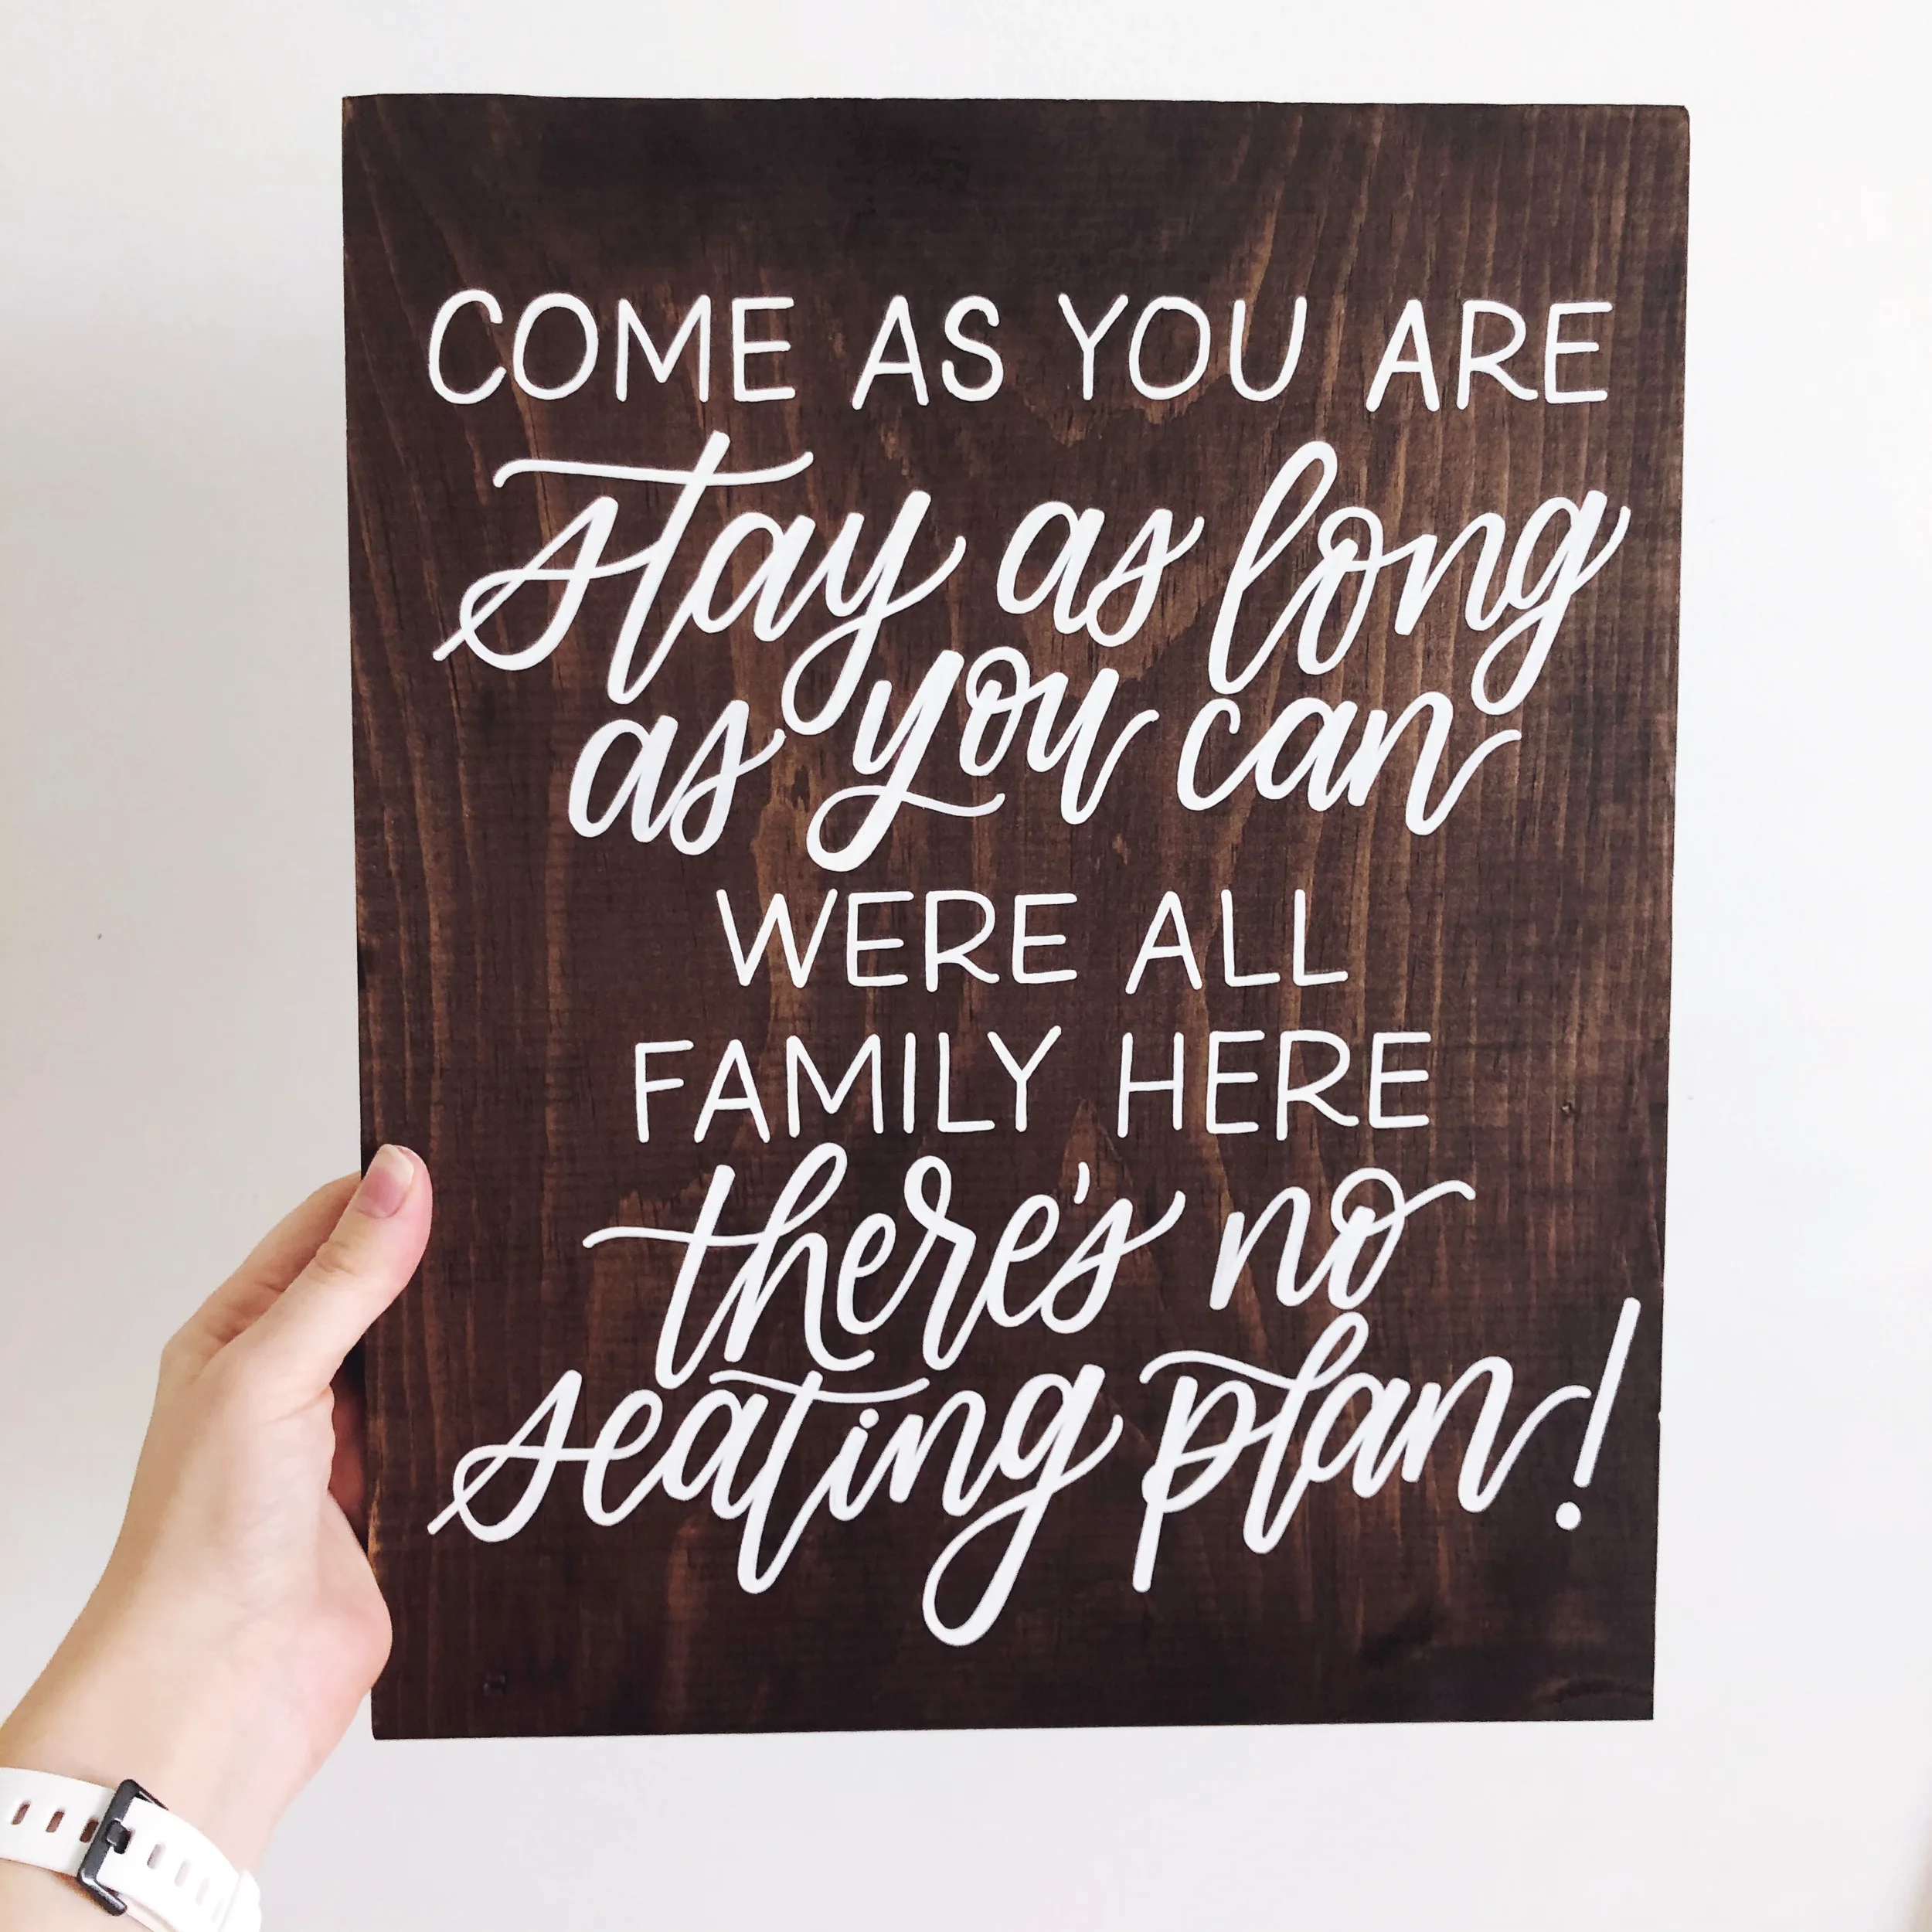 COME AS YOU ARE
stay as long
as you can
WERE ALL
FAMILY HERE
there's no
seating plan!